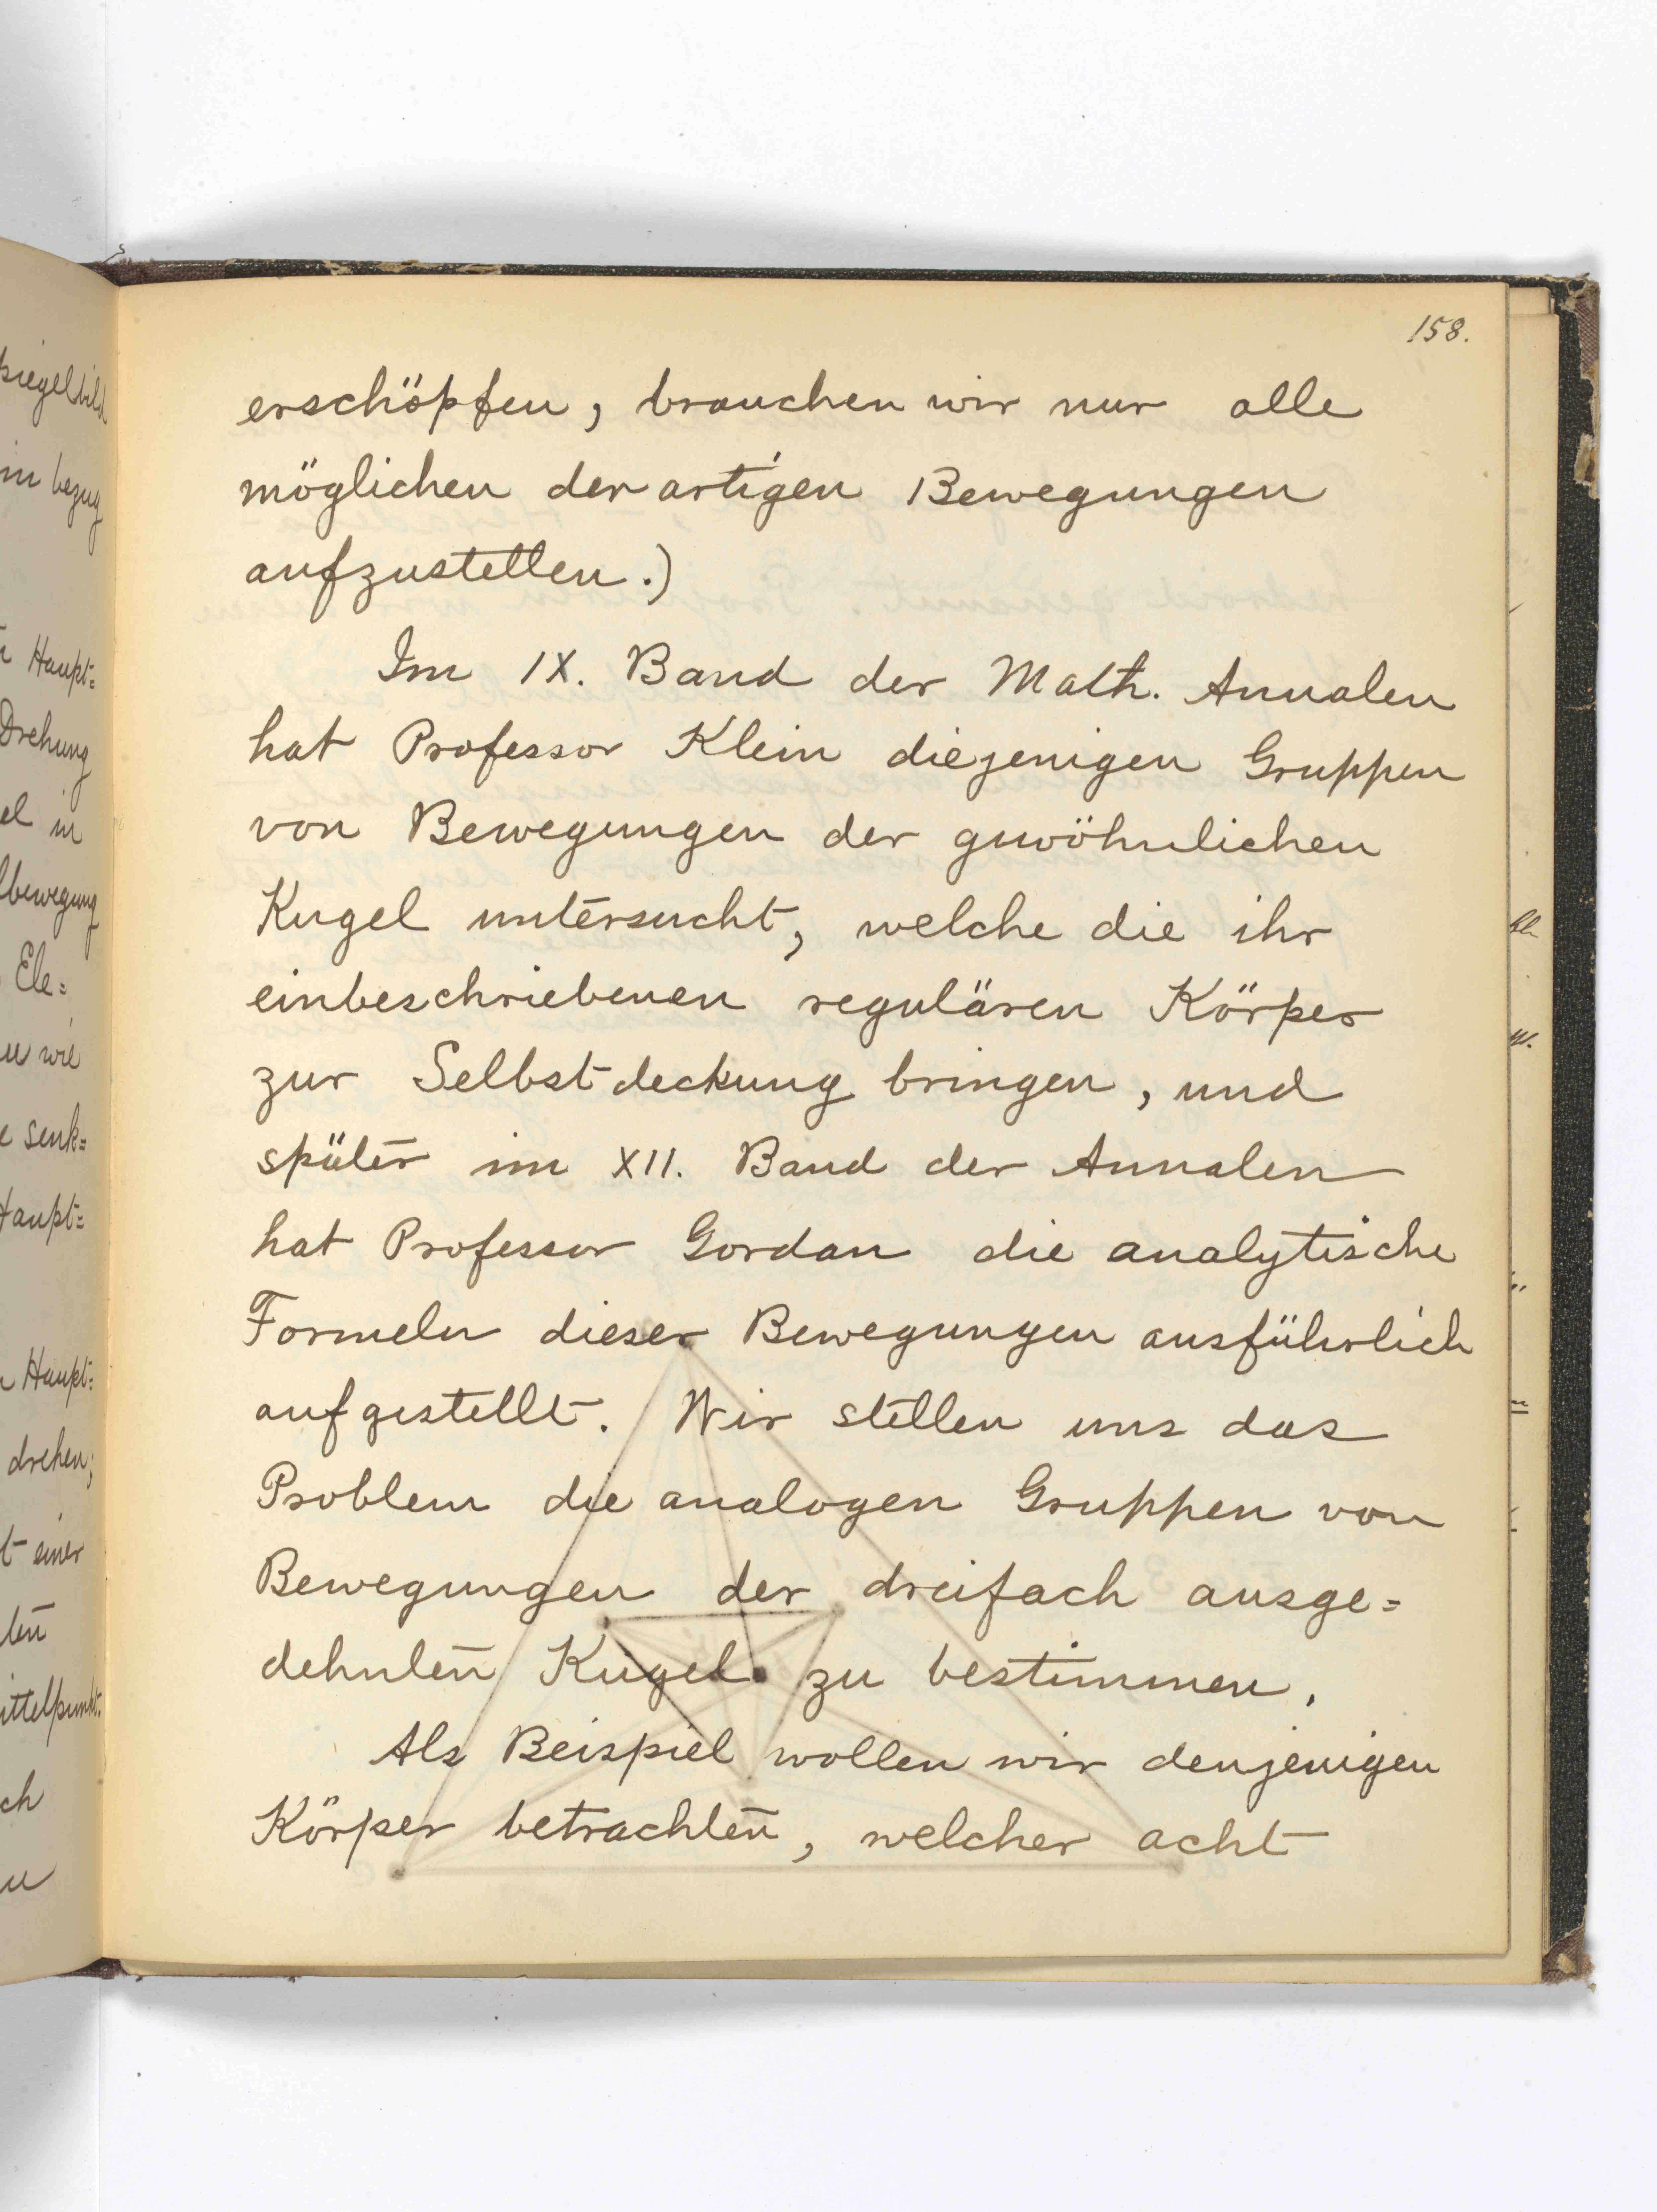 158.
erschöpfen, brauchen wir nur alle
möglichen derartigen Bewegungen
aufzustellen.)
Im IX. Band der Math. Annalen
hat Professor Klein diejenigen Gruppen
von Bewegungen der gewöhnlichen
Kugel untersucht, welche die ihr
einbeschriebenen regulären Körper
zur Selbstdeckung bringen, und
später im XII. Band der Annalen
hat Professor Gordan die analytische
Formeln dieser Bewegungen ausführlich
aufgestellt. Wir stellen uns das
Problem die analogen Gruppen von
Bewegungen der dreifach ausge=
dehnten Kugel zu bestimmen.
Als Beispiel wollen wir denjenigen
Körper betrachten, welcher acht
piegelbild
in bezug
Haupt=
Drehung
el in
lbewegung
Ele=
wie
senk=
Haupt=
Haupt=
drehen;
t einer
ten
ittelpunkt.
ch